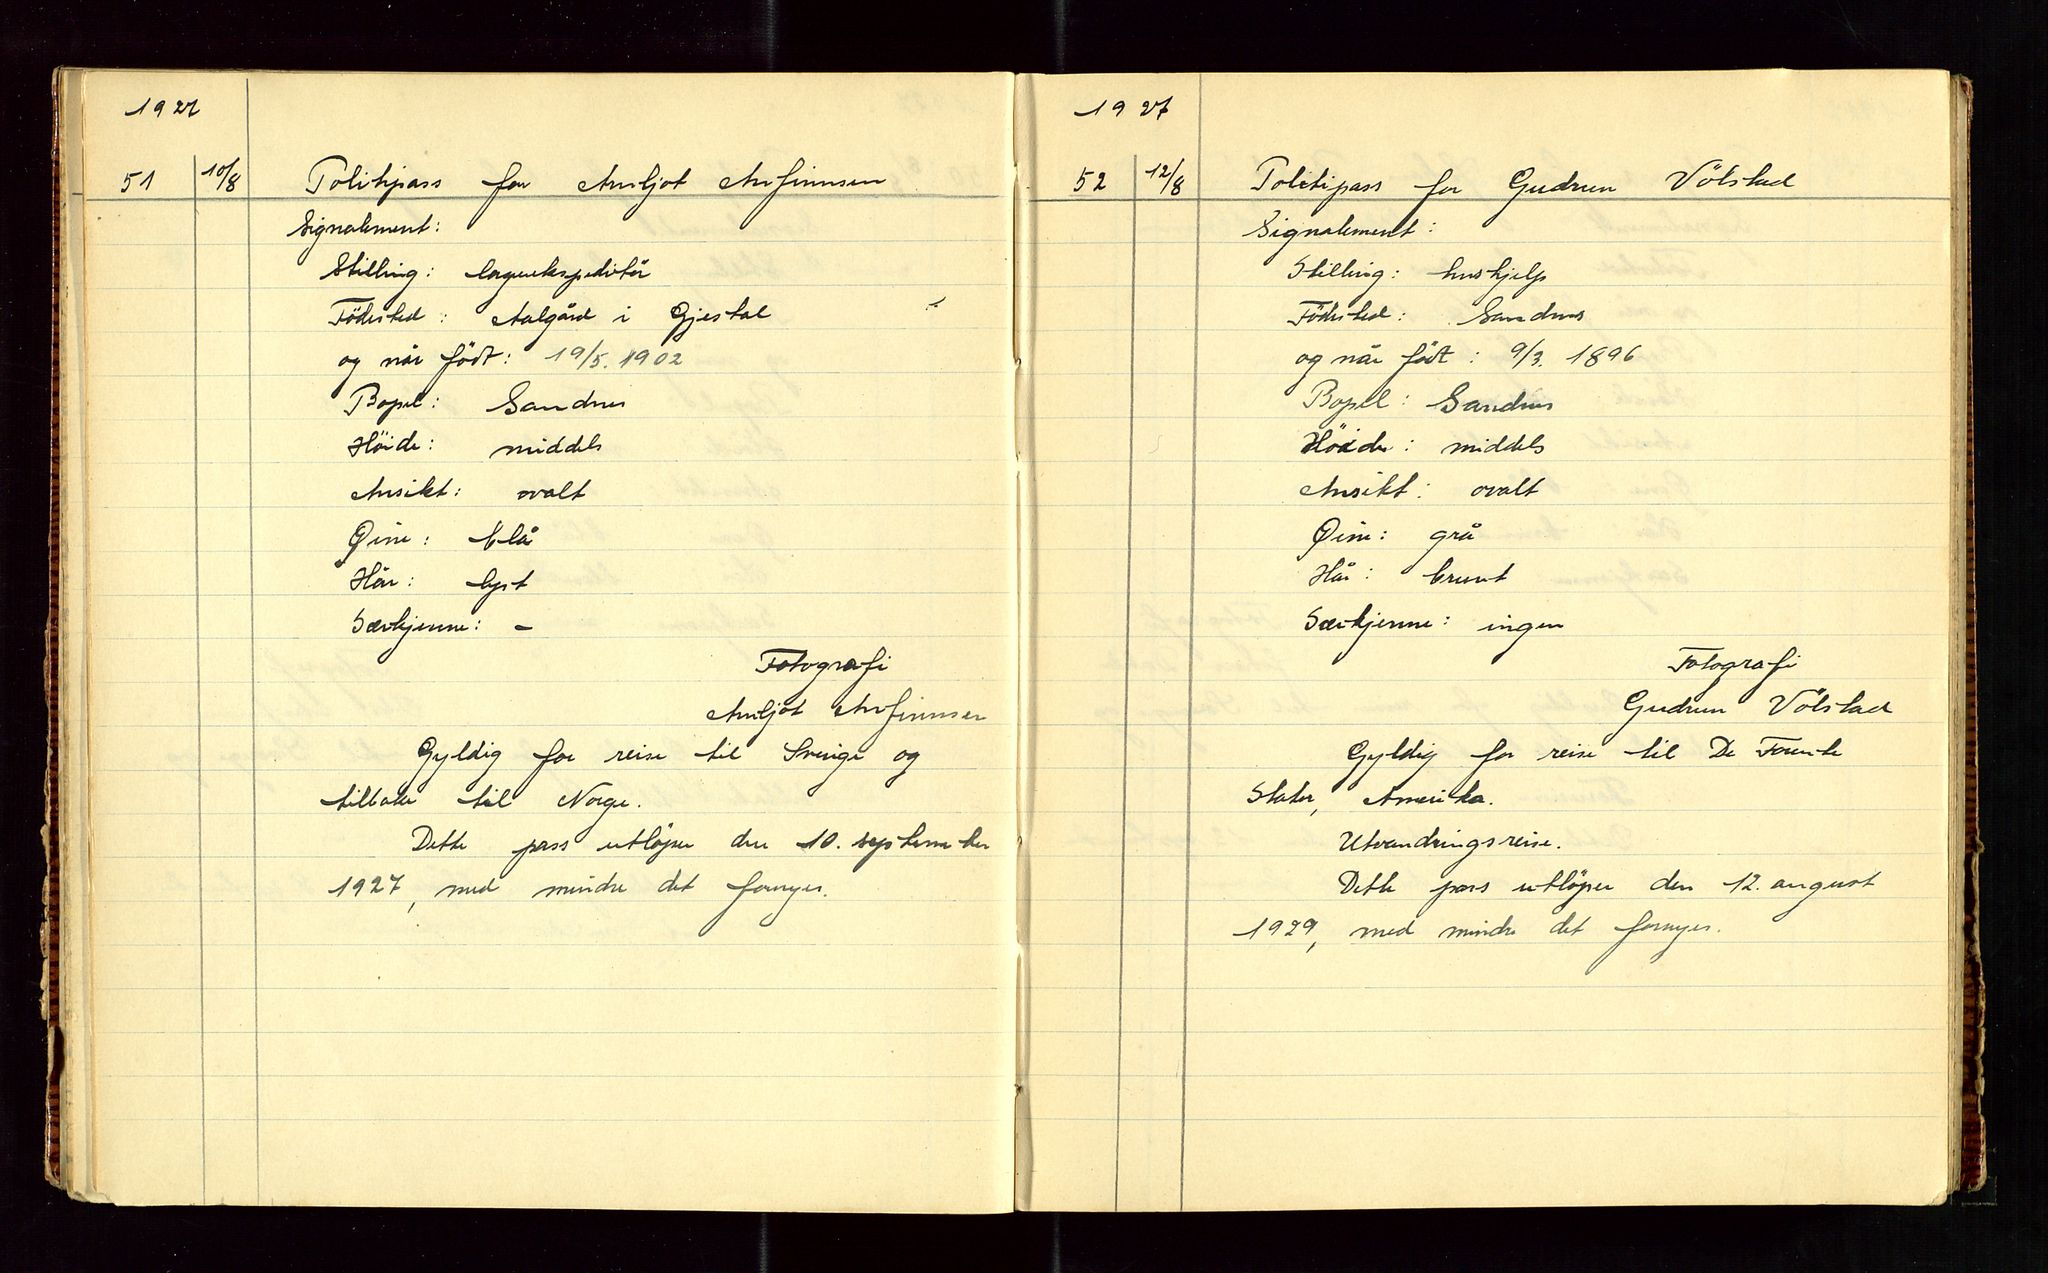 1927
51 10/8 Politipass for Arnljot Arnfinnsen
Signalement:
Stilling: lagerekspeditör
Födested: Aalgård i Gjestal
og når födt: 19/5. 1902
Bopel: Sandnes
Höide: middels
Ansikt: ovalt
Øine: blå
Hår: lyst
Særkjenne: –
Fotografi
Arnljot Arnfinnsen
Gyldig for reise til Sverige og
tilbake til Norge.
Dette pass utlöper den 10. september
1927, med mindre det fornyes.
1927
52 12/8 Politipass for Gudrun Völstad
Signalement:
Stilling: hushjelp
Födested: Sandnes
og når födt: 9/3. 1896
Bopel: Sandnes
Höide: middels
Ansikt: ovalt
Øine: grå
Hår: brunt
Særkjenne: ingen
Fotografi
Gudrun Völstad
Gyldig for reise til De Forente
Stater, Amerika.
Utvandringsreise.
Dette pass utlöper den 12. august
1929, med mindre det fornyes.